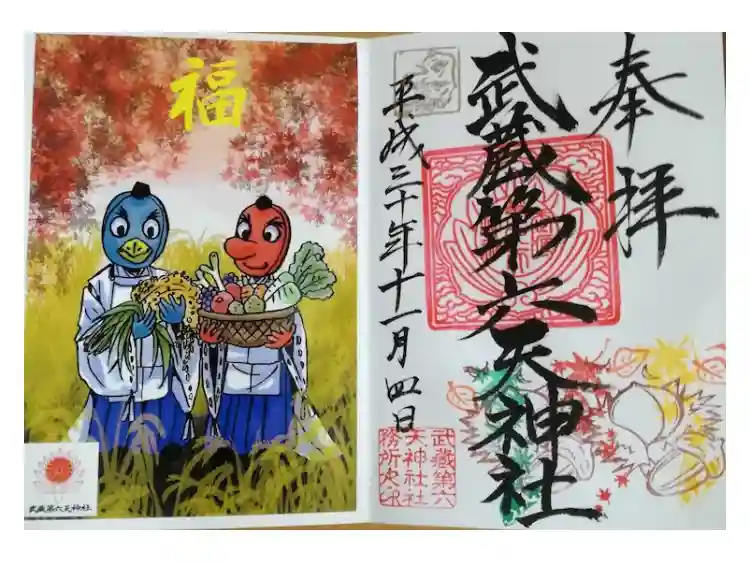 福
武蔵第六天神社
奉拝
武蔵第六天神社
平成三十年十一月四日
武蔵第六
天神社社
務所之印